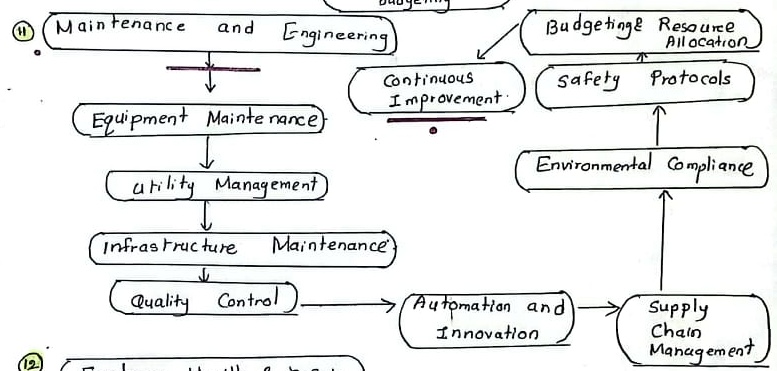 Budgeting
11 Maintenance and Engineering
Equipment Maintenance
Utility Management
Infrastructure Maintenance
Quality Control
Automation and
Innovation
Supply
Chain
Management
Environmental Compliance
Safety Protocols
Budgeting & Resource
Allocation
Continuous
Improvement.
12